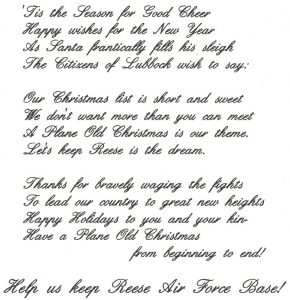 'Tis the Season for Good Cheer
Happy wishes for the New Year
As Santa frantically fills his sleigh
The Citizens of Lubbock wish to say:
Our Christmas list is short and sweet
We don't want more than you can meet
A Plane Old Christmas is our theme.
Let's keep Reese is the dream.
Thanks for bravely waging the fights
To lead our country to great new heights
Happy Holidays to you and your kin-
Have a Plane Old Christmas
from beginning to end!
Help us keep Reese Air Force Base!